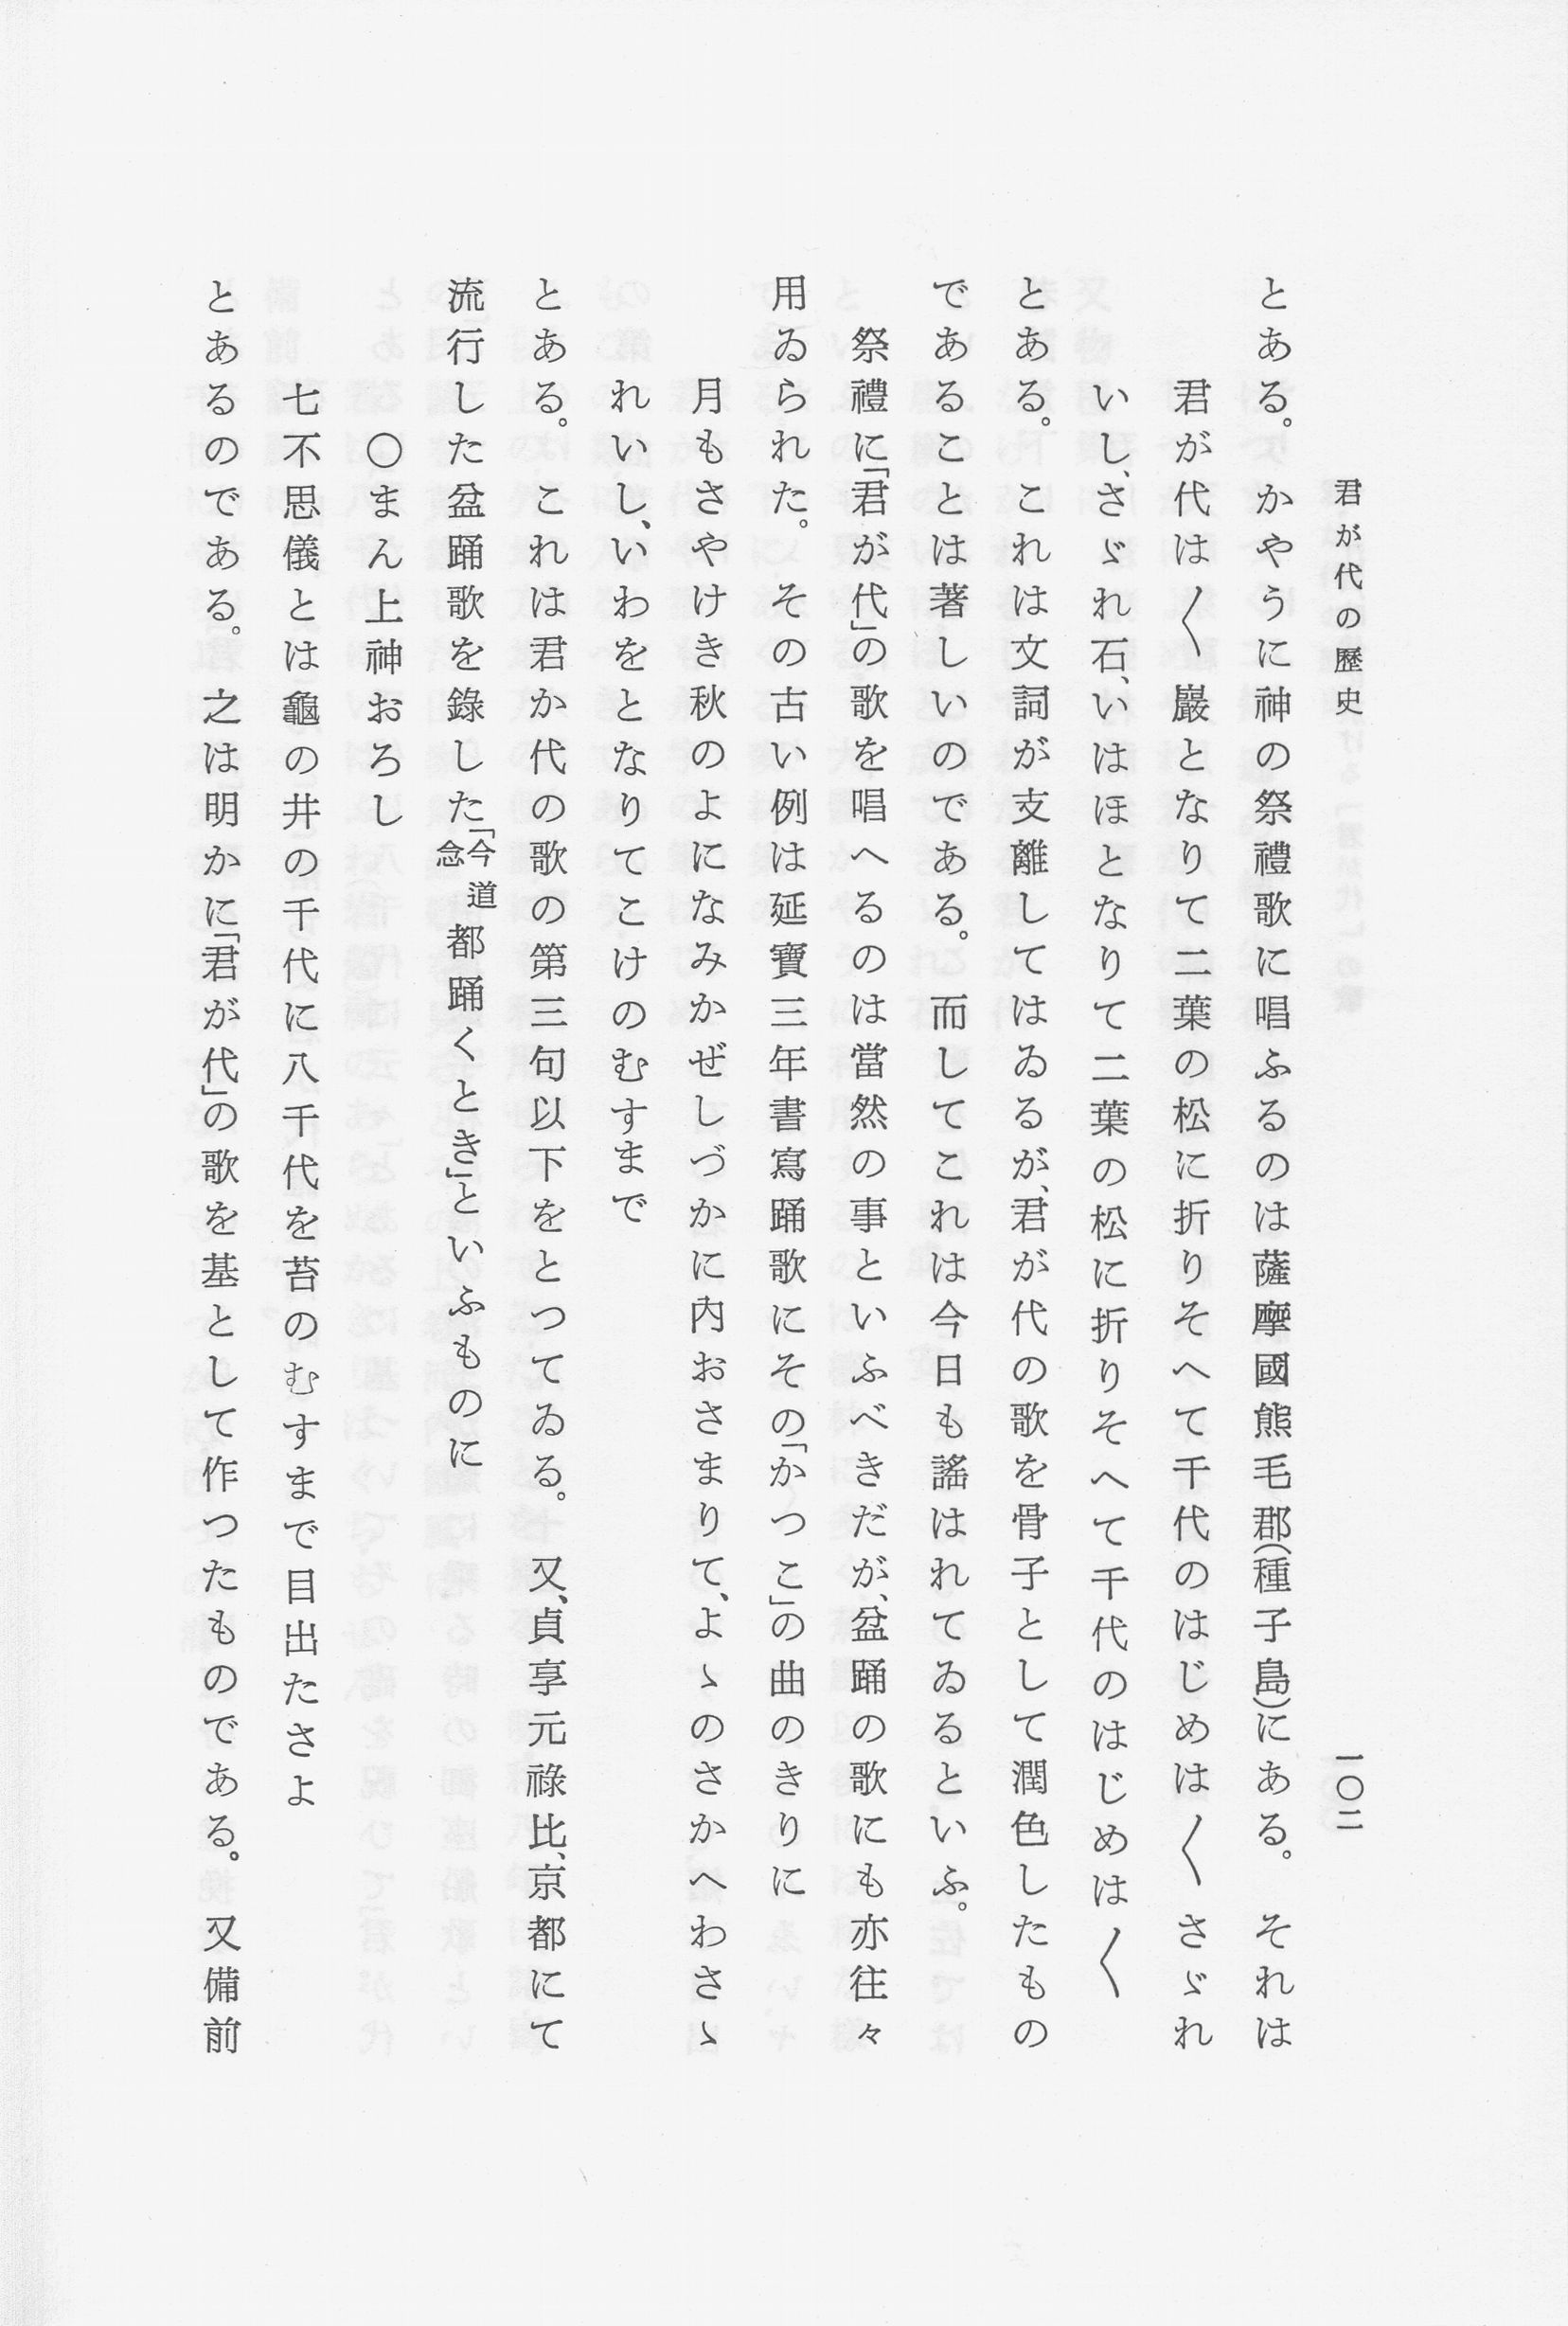 君が代の歴史
一〇二
とある。かやうに神の祭禮歌に唱ふるのは薩摩國熊毛郡(種子島)にある。それは
君が代は〱巖となりて二葉の松に折りそへて千代のはじめは〱さゞれ
いし、さゞれ石、いはほとなりて二葉の松に折りそへて千代のはじめは〱
とある。これは文詞が支離してはゐるが、君が代の歌を骨子として潤色したもの
であることは著しいのである。而してこれは今日も謠はれてゐるといふ。
祭禮に「君が代」の歌を唱へるのは當然の事といふべきだが、盆踊の歌にも亦往々
用ゐられた。その古い例は延寶三年書寫踊歌にその「かつこ」の曲のきりに
月もさやけき秋のよになみかぜしづかに内おさまりて、よゝのさかへわさゝ
れいし、いわをとなりてこけのむすまで
とある。これは君か代の歌の第三句以下をとつてゐる。又、貞享元祿比、京都にて
流行した盆踊歌を錄した「今念道都踊くとき」といふものに
〇まん上神おろし
七不思儀とは龜の井の千代に八千代を苔のむすまで目出たさよ
とあるのである。之は明かに「君が代」の歌を基として作つたものである。又備前